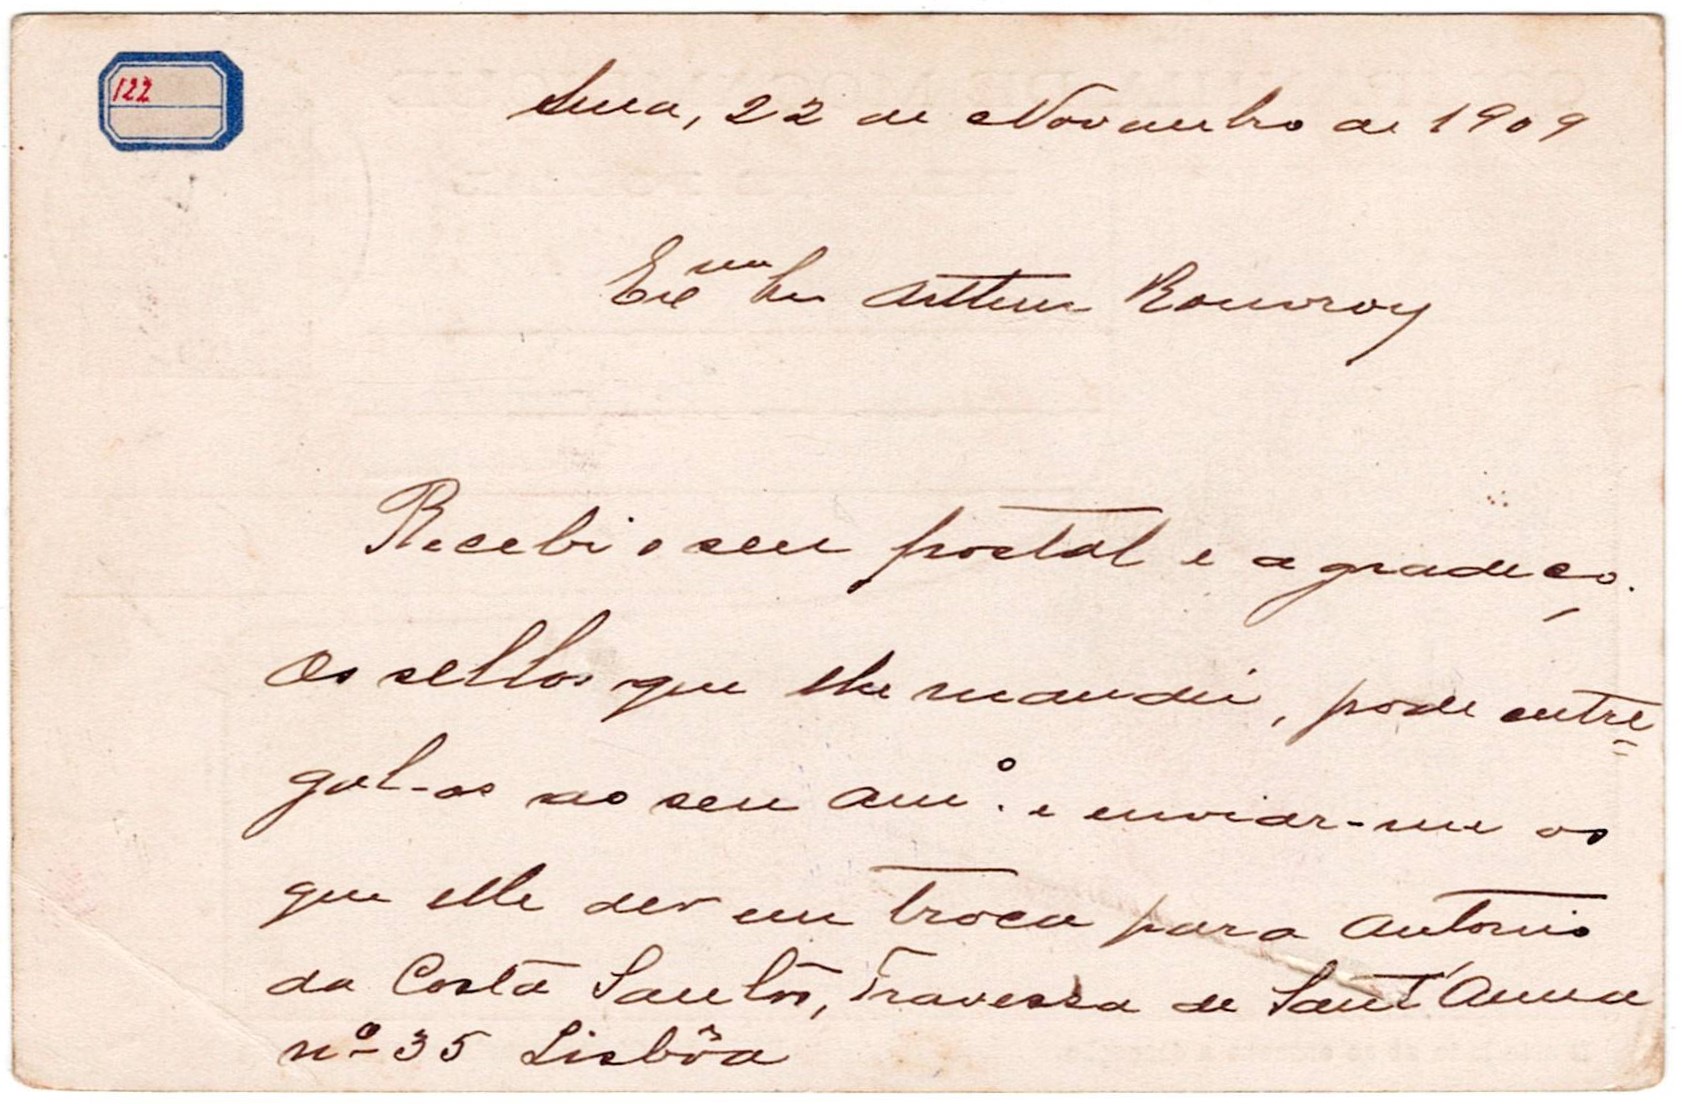 122
Sena, 22 de Novembro de 1909
Exmo Snr Arthur Rouvroy
Recebi o seu postal e agradeço.
Os sellos que lhe mandei, pode entre=
gal-os ao seu amo. e enviar-me os
que elle der em troca para Antonio
da Costa Santos, Travessa de Sant'Anna
nº 35 Lisbôa